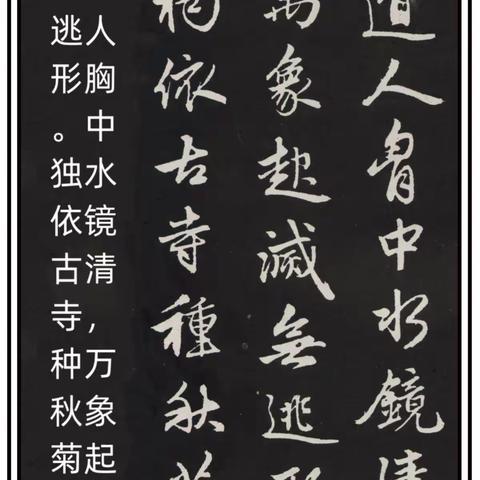 道人胷中水鏡清
萬象起滅無逃形
獨依古寺種秋菊
人胸中水镜清，万象起
逃形。独依古寺种秋菊